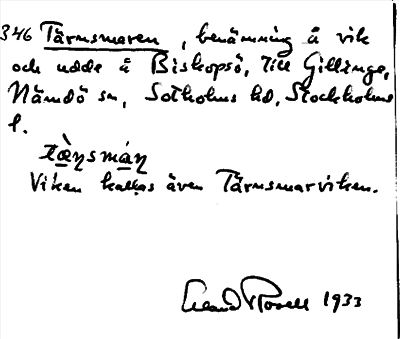 346 Tärnsmaren, benämning å vik
och udde å Biskopsö, till Gillinge,
Nämdö sn, Sotholms hd, Stockholms
l.
tæ̀ṇsmáṇ
Viken kallas även Tärnsmarviken.
1933